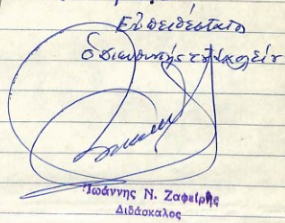 Εὐπειθέστατος
ὁ Διευθυντής τοῦ Σχολείου
Ἰωάννης Ν. Ζαφείρης
Διδάσκαλος